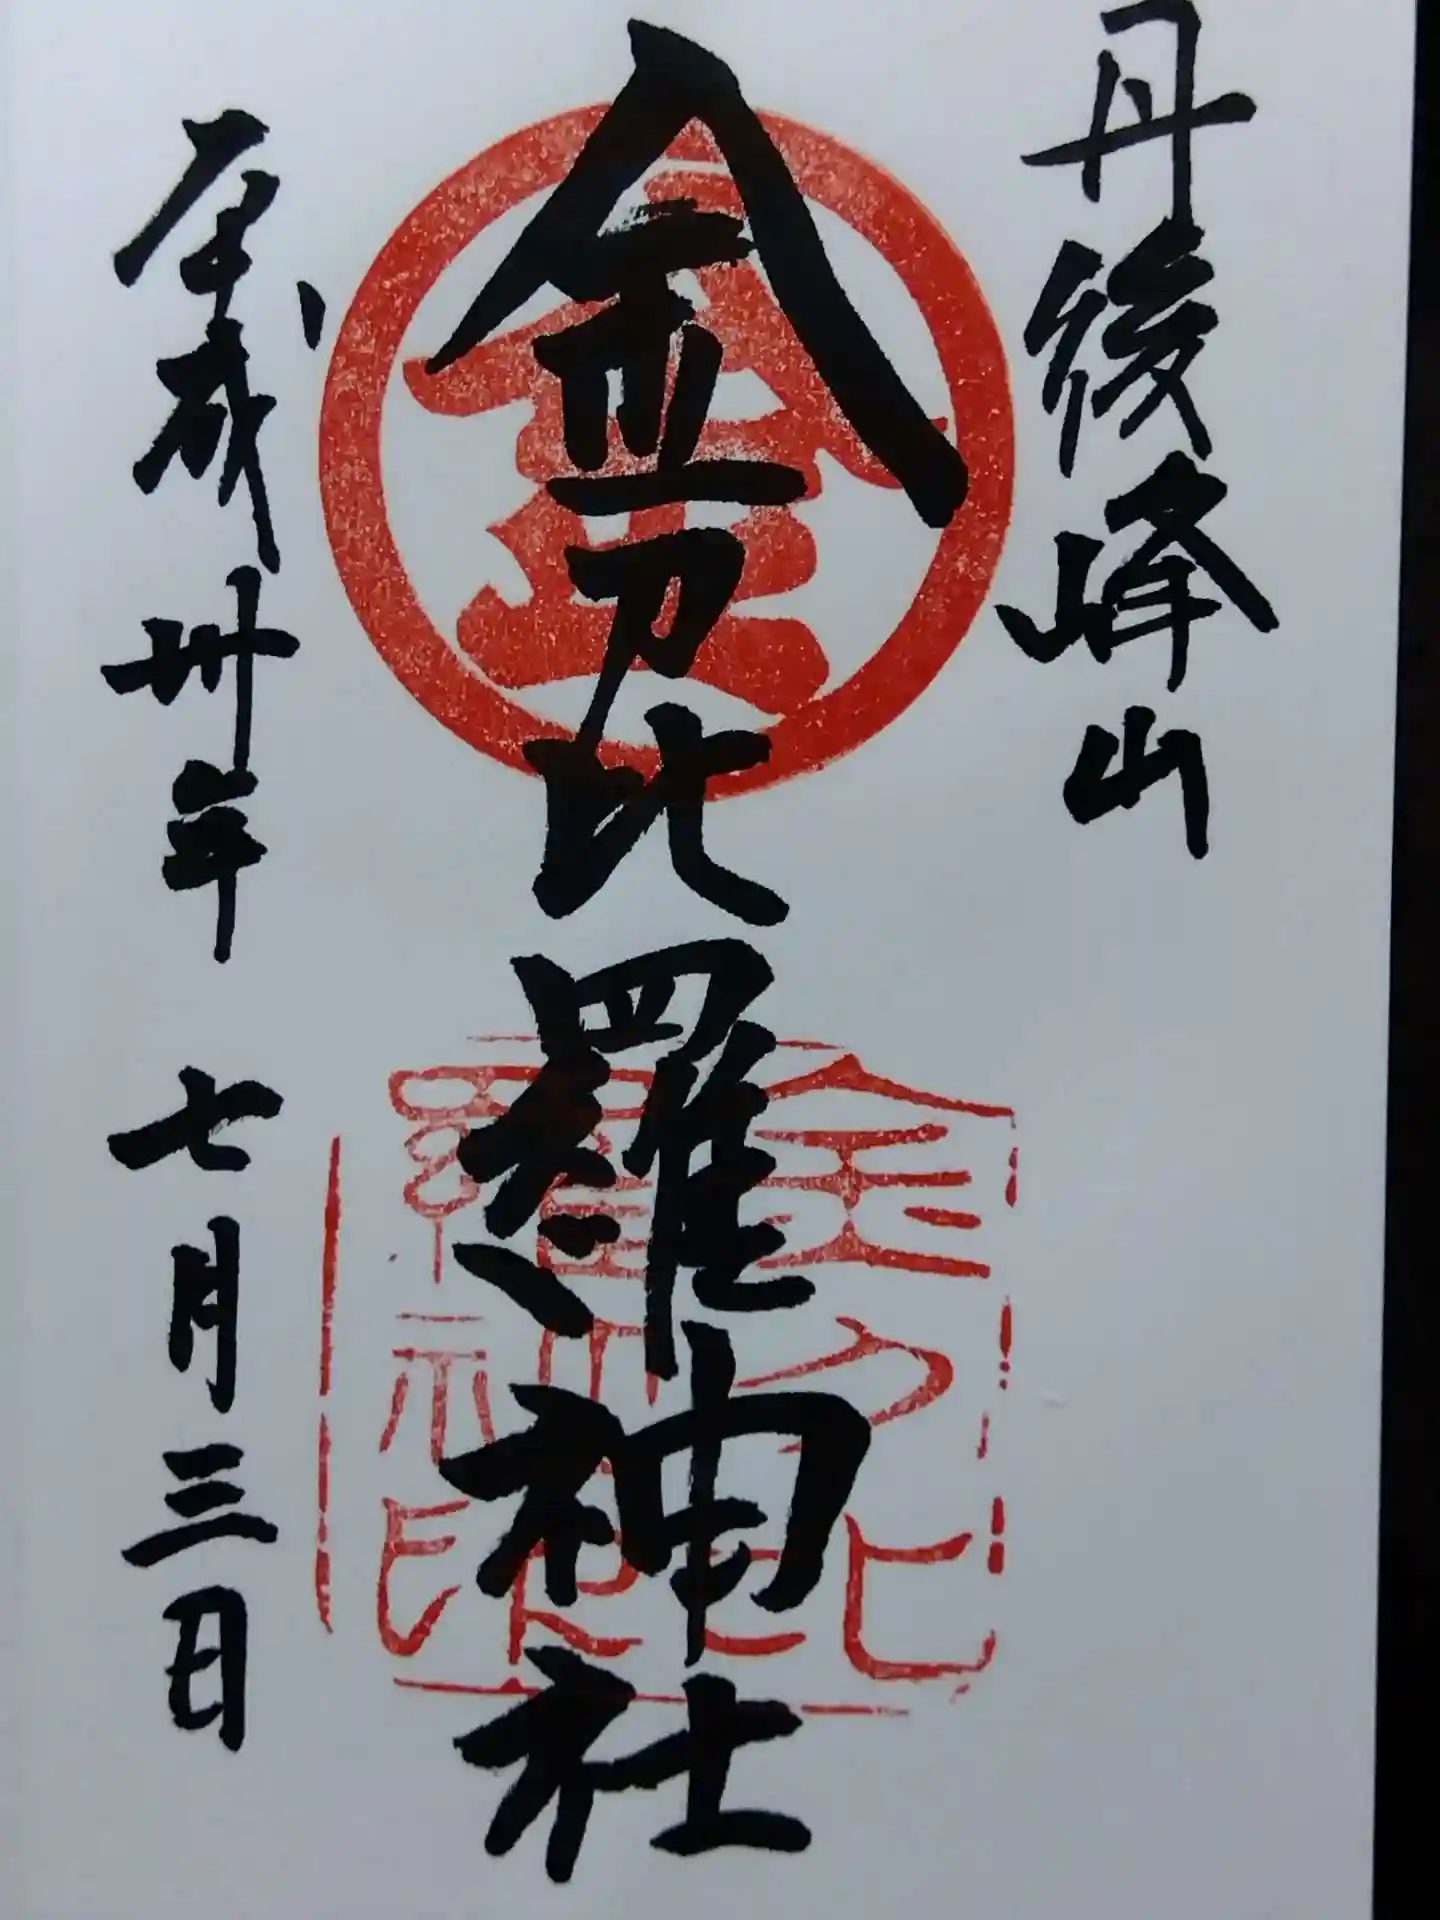 丹後峰山
金
金刀比羅神社
金刀比
羅神印
平成卅年 七月三日